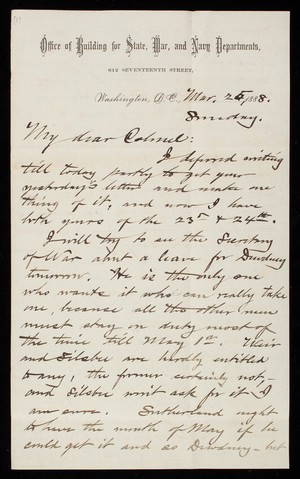 Office of Building for State, War, and Navy Departments,
612 SEVENTEENTH STREET,
Washington, D.C., Mar. 25, 1888.
Sunday.
My dear Colonel:
I deferred writing
till today partly to get your
yesterday's letter and make one
thing of it, and now I have
both yours of the 23d & 24th.
I will try to see the Secretary
of War about a leave for Dewdney
tomorrow. He is the only one
who wants it who can really take
one, because all the other men
must stay on duty most of
the time till May 1st.
and Silsbee are hardly entitled
to any, the former certainly not,—
and Silsbee won't ask for it I
am sure. Sutherland ought
to have the month of May if he
could get it and so Dewdney—but